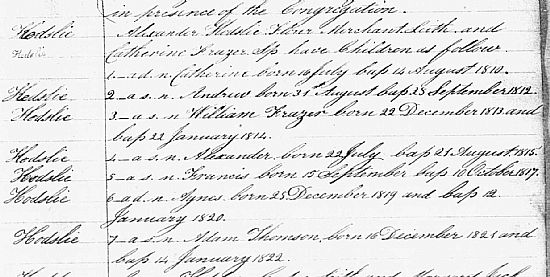 in presence of the Congregation.
Hodslie Alexander Hodslie Flour Merchant Leith and
Hodslie Catherine Frazer Sp. have Children as follow
1 - a d. n Catherine born 19 July bap 14 August 1810.
Hodslie 2 - a s. n. Andrew born 31st August bap 28 September 1812.
Hodslie 3 - a s. n William Frazer born 22 December 1813 and
bap 22 January 1814.
Hodslie 4 - a s. n. Alexander born 22 July bap 21 August 1815.
Hodslie 5 - a s. n. Francis born 15 September bap 10 October 1817.
Hodslie 6 - a d. n. Agnes born 25 December 1819 and bap 12
January 1820.
Hodslie 7 - a s. n. Adam Thomson born 16 December 1821 and
bap 14 January 1822.